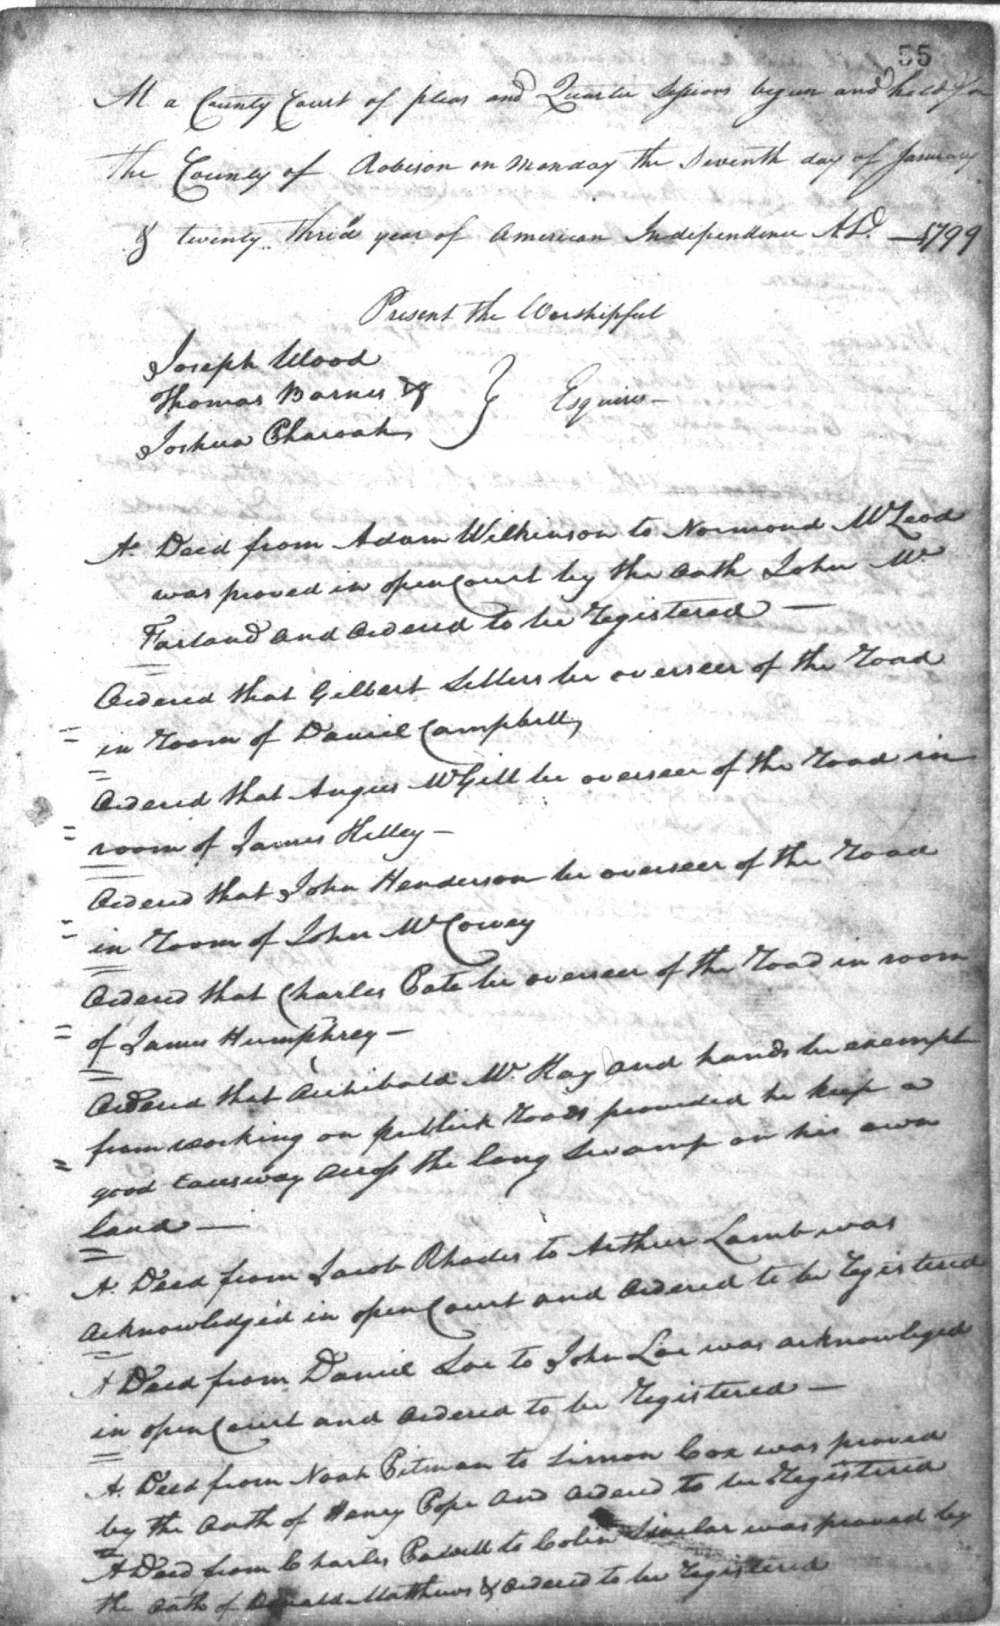 55
At a County Court of pleas and Quarter Sessions begun and held for
the County of Robeson on Monday the Seventh day of January
& twenty third year of American Independence A.D. 1799
Present the Worshipful
Joseph Wood
Thomas Barnes &
Joshua Pharoah
Esquires
A Deed from Adam Wilkinson to Normond McLeod
was proved in open Court by the oath John Mc
Farland and ordered to be Registered
Ordered that Gilbert Sellers be overseer of the Road
in Room of Daniel Campbell
Ordered that Angus McGill be overseer of the Road in
room of James
Ordered that John Henderson be overseer of the Road
in Room of John McCowey
Ordered that Charles Pate be overseer of the Road in room
of James Humphrey
Ordered that Archibald McKay and hands be exempt
from working on publick Roads provided he keep a
good Causway across the long Swamp on his own
land
A Deed from Jacob Rhodes to Arthur Lamb was
acknowledg'd in open Court and ordered to be Registered
A Deed from Daniel Loe to John Loe was acknowleged
in open Court and ordered to be Registered
A Deed from Noah Pitman to Simon Cox was proved
by the oath of Henry Pope and ordered to be Registered
A Deed from Charles Powell to Colin Sinclar was proved by
the oath of Donald Matthews & ordered to be Registered